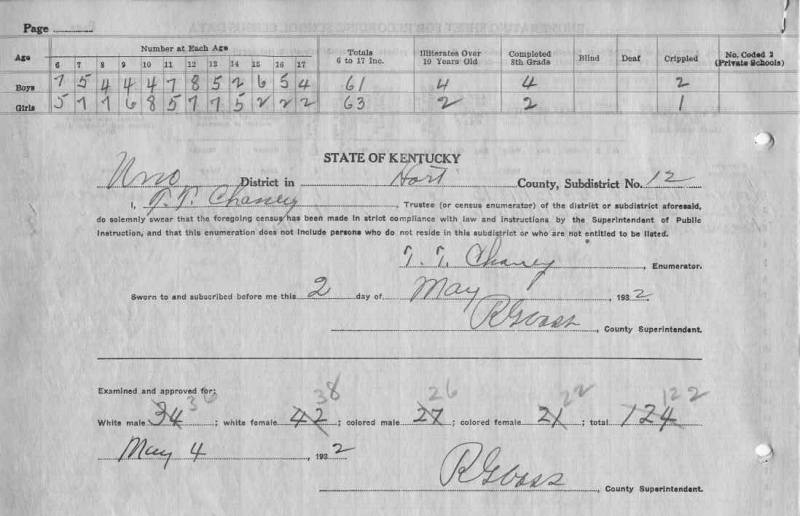 Page
Age Number at Each Age Totals 6 to 17 Inc. Illiterates Over 10 Years Old Completed 8th Grade Blind Deaf Crippled No. Coded 2 (Private Schools)
6 7 8 9 10 11 12 13 14 15 16 17
Boys 7 5 4 4 4 7 8 5 2 6 5 4 61 4 4 2
Girls 5 7 7 6 8 5 7 7 5 2 2 2 63 2 2 1
STATE OF KENTUCKY
Uno District in Hart County, Subdistrict No. 12
I, T. T. Chaney, Trustee (or census enumerator) of the district or subdistrict aforesaid,
do solemnly swear that the foregoing census has been made in strict compliance with law and instructions by the Superintendent of Public
Instruction, and that this enumeration does not include persons who do not reside in this subdistrict or who are not entitled to be listed.
T. T. Chaney, Enumerator.
Sworn to and subscribed before me this 2 day of May, 1932
County Superintendent.
Examined and approved for:
36 38 26 22 122
White male 34; white female 42; colored male 27; colored female 21; total 124
May 4, 1932
County Superintendent.